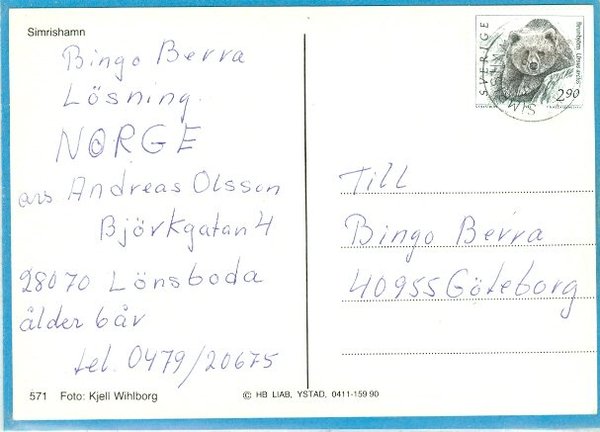 Simrishamn
Bingo Berra
Lösning.
NORGE
avs Andreas Olsson
Björkgatan 4
28070 Lönsboda
ålder 6år
tel. 0479/20675
571 Foto: Kjell Wihlborg
© HB LIAB, YSTAD, 0411-159 90
SVERIGE
Brunbjörn Ursus arctos
2.90
Till
Bingo Berra
40955 Göteborg